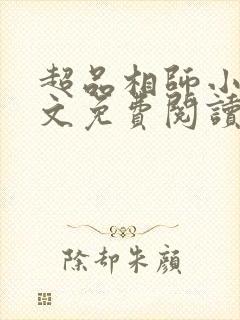 超品相師小
文免費閱讀
除却朱顏